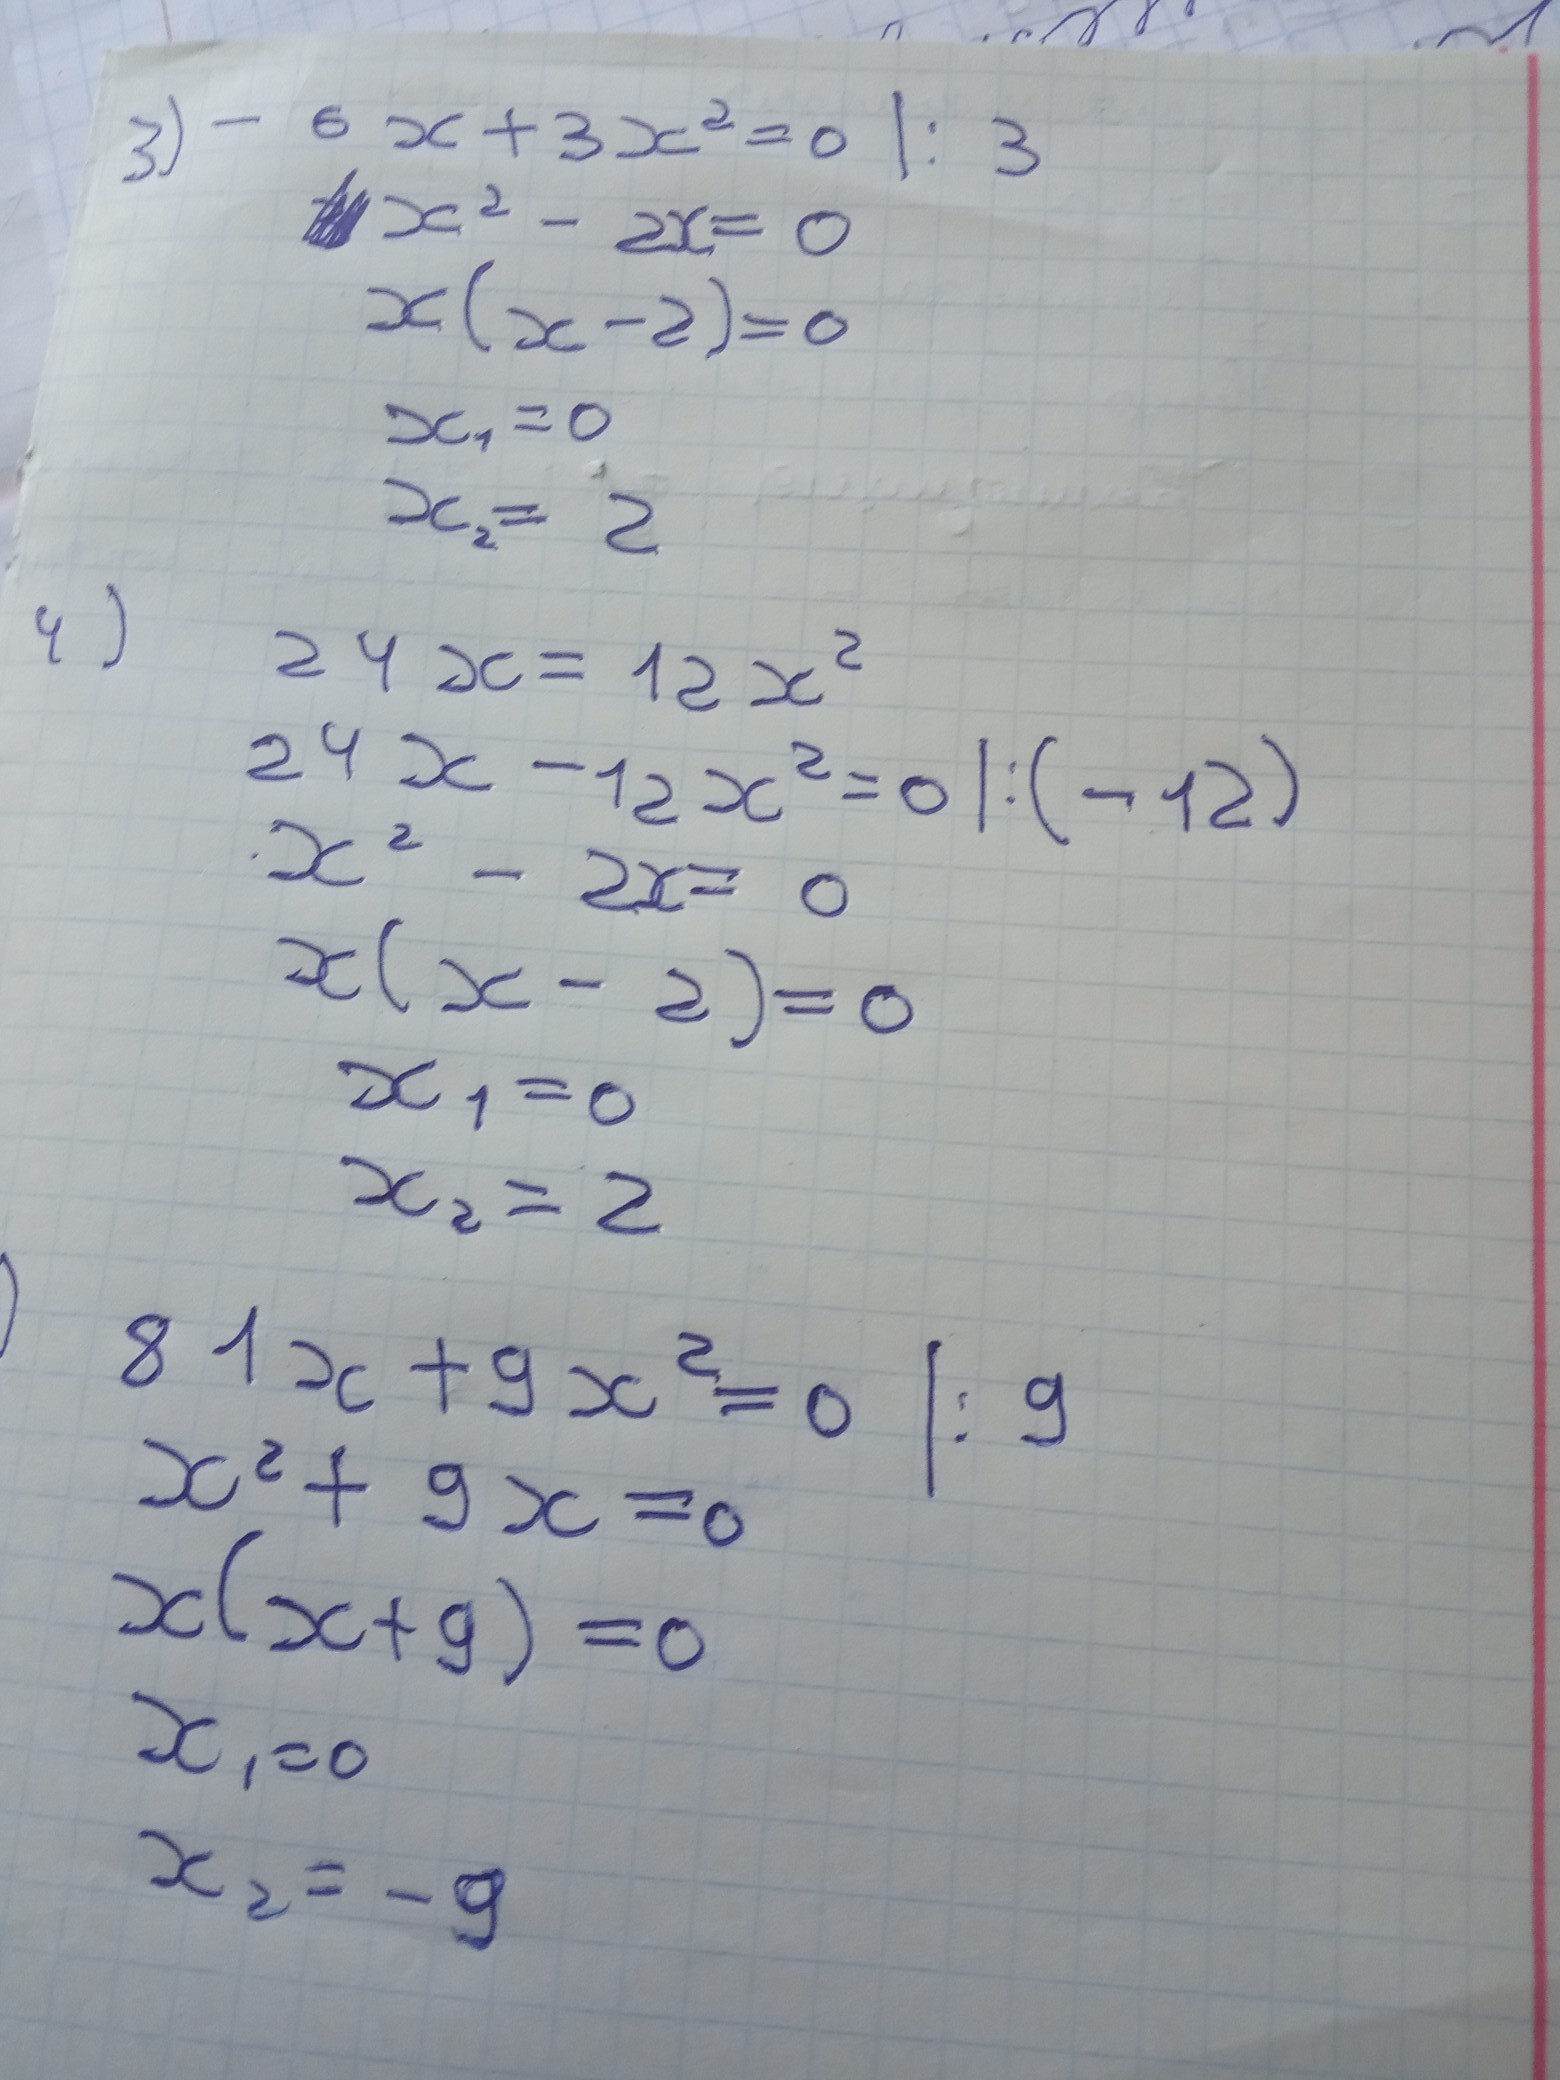 3) - 6x + 3x² = 0 |: 3
x² - 2x = 0
x(x - 2) = 0
x₁ = 0
x₂ = 2
4) 24x = 12x²
24x - 12x² = 0 |:(-12)
x² - 2x = 0
x(x - 2) = 0
x₁ = 0
x₂ = 2
) 81x + 9x² = 0 |: 9
x² + 9x = 0
x(x + 9) = 0
x₁ = 0
x₂ = -9